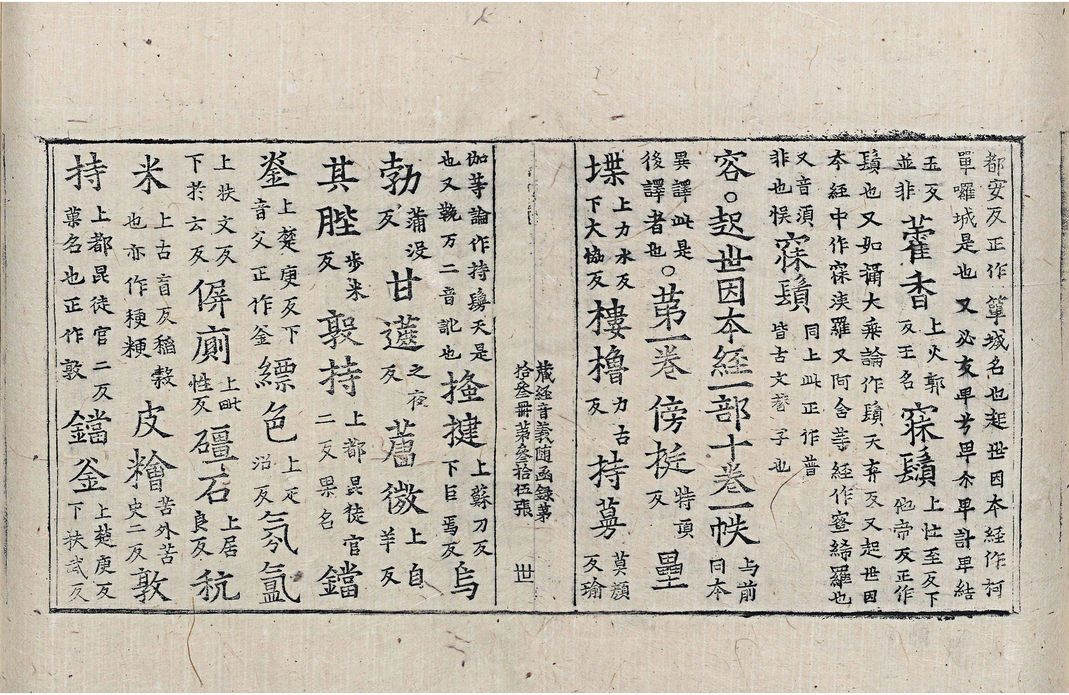 都安反正作簞城名也起世因本經作訶
單囉城是也又必亥畢兮畢介畢計畢結
玉反並非藿香上火郭反王名寐鬚上忙至反下他帝反正作
鬚也又如攝大乘論作䭞天弃反又起世因
本經中作寐洟羅又阿含䓁經作寐締羅也
又音須非也悮寐䭞同上此正作普皆古文巻子也
容。起世因本經一部十卷一帙与前同本
異譯此是後譯者也。苐一卷傍梃特頂反壘
堞上力水反下大協反樓櫓力古反持莫顏反瑜
藏經音義随函録第
拾叁冊第叁拾伍張
世
伽䓁論作持鬘天是也又輓万二音訛也搔揵上蘇刀反下巨焉反烏
勃蒲没反甘蔗之夜反薇上自羊反
其䏶步米反敦持上都昆徒官二反果名鐺
釡上楚庚反下音父正作釜縹色上疋沼反氛氳
上扶文反下於云反偋廁上毗性反礓石上居良反秔
米上古盲反稲穀也亦作粳粇皮糩苦外苦史二反敦
持上都昆徒官二反菓名也正作敦鐺釜上楚庚反下扶武反